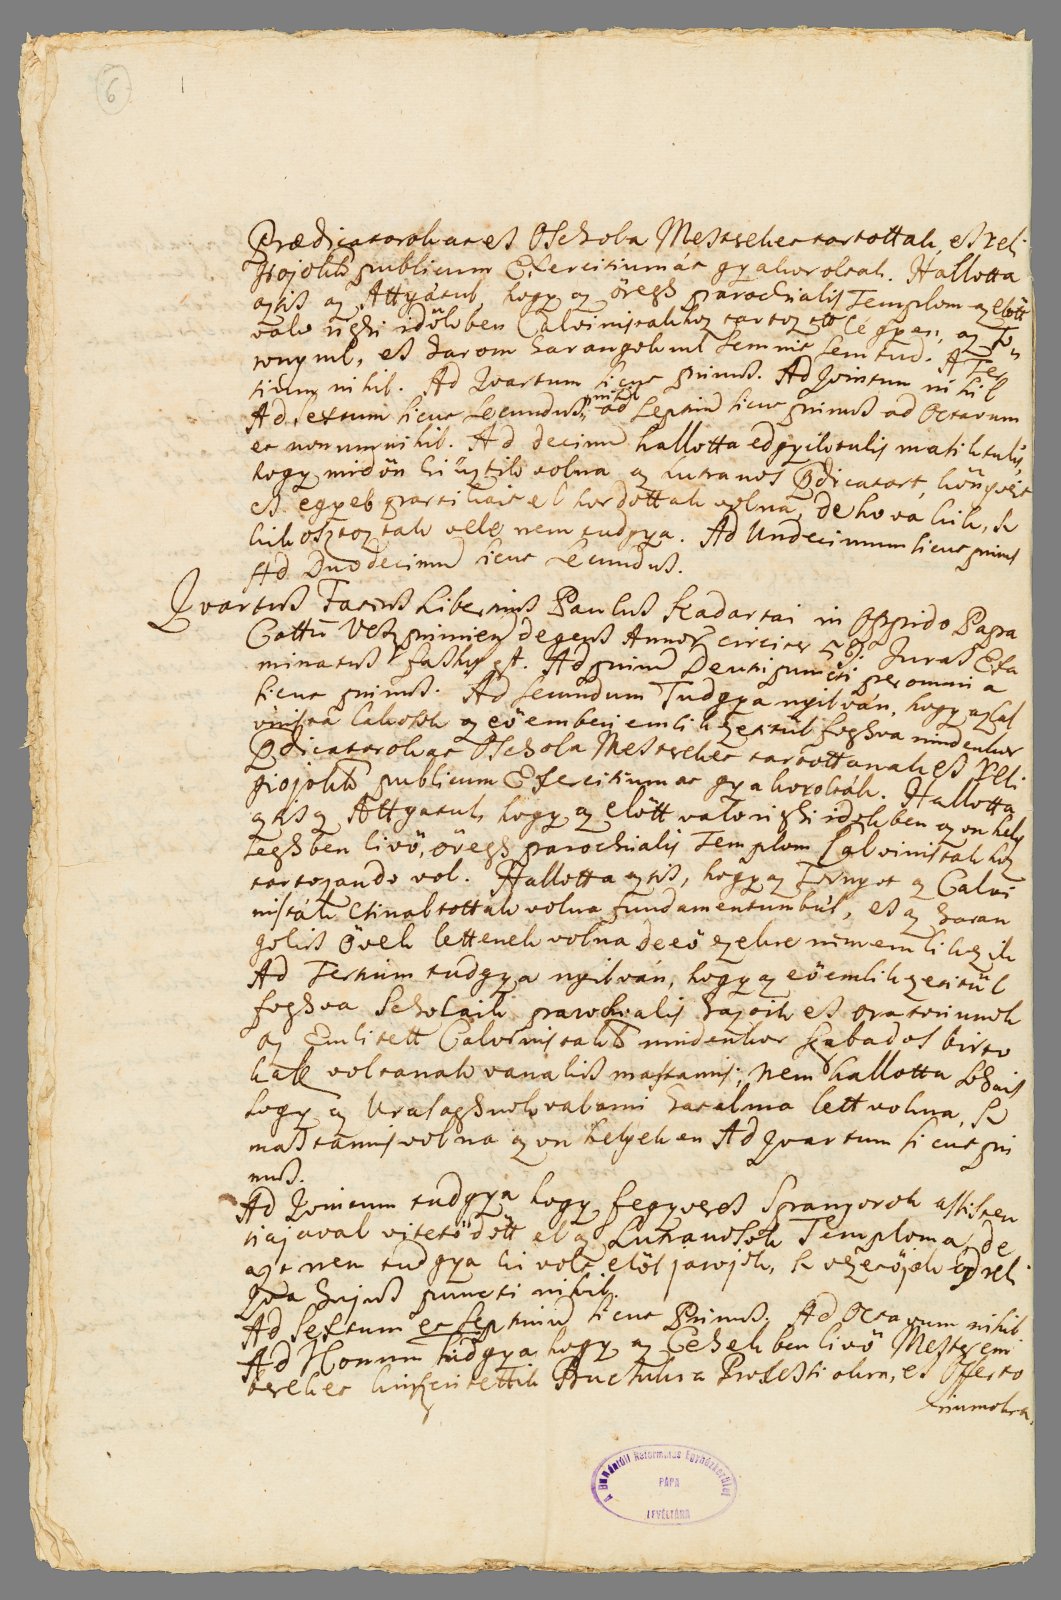 6
Prædicatorokat es Oschola Mestereket tartottak, es reli
giojokb publicum Exercitiumát gyakorolták. Hallotta
aztis az Attyátul, hogy az öregh parochialis Templom az elött
való üdökben Calvinistakhoz tartozott légyen, az To
ronyrul, es harom harangokrul semmit sem tud. Ad Ter
tium nihil. Ad Quartum sicut primus. Ad Quintum nihil
Ad sextum sicut secundus, nihil ad Septim sicut primus ad Octavum
et nonum nihil. Ad decimu hallotta edgyiktulis masiktulis,
hogy midön ki üztik volna az Lutranos Pdicatort, könyveit
es egyeb partikait el hordottak volna, de hova lik, s
kik osztoztak vele nem tudgya. Ad Undecimum sicut primus
Ad Duodecimu sicut secundus.
Quartus Testis Libertinus Paulus Kadartai in Oppido Papa
Cottu Veszprimien degens Annor circiter 58. Jurat Exa
minatus fassus est. Ad primu Deutri puncti per omnia
sicut primus. Ad secundum Tudgya nyilván, hogy az Cal
vinista lakosok az eö emberi emlikezetitül foghva mindenkor
Pdicatorokat Oschola Mestereket tartottanak es Reli
giojokb publicum Exercitiumat gyakorolták. Hallotta
aztis az Attyatul, hogy az elött valo righi idökben az on hely
seghben livö, öregh parochialis Templom Calvinistakhoz
tartozando vol. Hallotta aztis, hogy az Tornyot az Calvi
nisták csinaltottak volna fundamentumbul, es az haran
gokis övek lettenek volna de eö ezekre nem emlikezik
Ad Tertium tudgya nyilván, hogy az eö emlikezetitül
foghva Scholaik parochialis hazoik es oratoriumok
az Emlitett Calvinistakb mindenkor szabados birto
kak voltanak vannakis mastannis; Nem hallotta sohais
hogy az Urasaghnak valami hatalma lett volna, s
mastannis volna az on helyeken Ad Quartum sicut pri
mus.
Ad Quintum tudgya hogy fegyveres Spanyorok assisten
tiajaval vitetödött el az Lutranosok Temploma, de
azt nem tudgya ki volt elöl jarojok, s vezeröjök ad reli
qua hujus puncti nihil.
Ad Sextum et septimu sicut Primus. Ad Octavum nihil
Ad Nonum tudgya hogy az Cehekben livö Mesterem
bereket kinszeritettik Pructukra Processiokra, es Offerto
riumokra.
A Dunántúli Református Egyházkerület
PÁPA
LEVÉLTÁRA